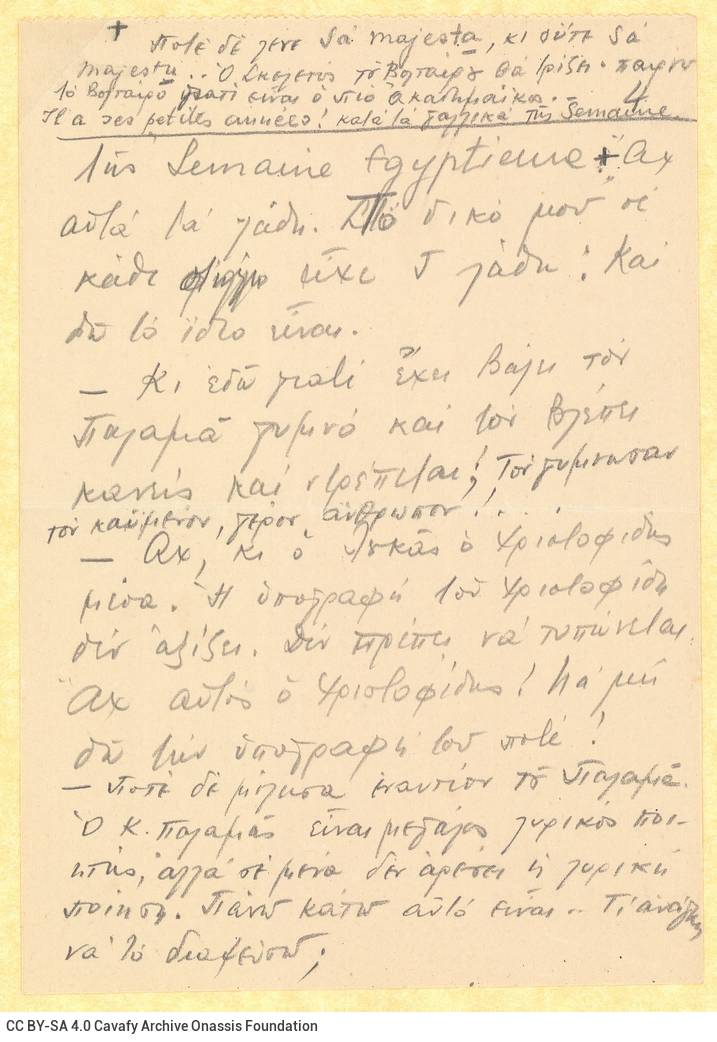 + Ποτὲ δὲ λενε Sa majesta, κι οὔτε Sá
majestu.. Ὁ Σκελετός τοῦ Βολταίρου θὰ τρίζει. παίρνω
τὸ Βολταῖρο γιατὶ εἶναι ὁ πιὸ ἀκαδημαϊκος.
Il a ses petites années! κατὰ τὰ γαλλικὰ τῆς Semaine
τῆς Semaine Egyptienne + Ἄχ
αὐτὰ τὰ λάθη. Στὸ δικό μου σὲ
κάθε εἶχε 5 λάθη! Καὶ
δῶ τὸ ἴδιο εἶναι.
— Κι ἐδῶ γιατὶ ἔχει βάλει τὸν
Παλαμᾶ γυμνό καὶ τὸν βλέπει
κανεὶς καὶ ντρέπεται; Τὸν γυμνωσαν
τὸν καϋμενον, γέρον ἄνθρωπον!....
— Ἄχ, κι ὁ Λουκᾶς ὁ Χριστοφίδης
μέσα. Ἡ ὑπογραφή τοῦ Χριστοφίδη
δὲν ἀξίζει. Δὲν πρέπει νά τυπώνεται.
Ἄχ αὐτὸς ὁ Χριστοφίδης! Νὰ μὴ
δῶ τὴν ὑπογραφή του ποτέ!
— Ποτὲ δὲ μίλησα ἐναντίον τοῦ Παλαμᾶ.
Ὁ Κ. Παλαμᾶς εἶναι μεγάλος λυρικὸς ποι-
ητής, ἀλλὰ σὲ μένα δὲν ἀρέσει ἡ λυρικὴ
ποίηση. Πάνω κάτω αὐτὸ εἶναι.. Τί ἀνάγκη
νὰ τὸ διαψεύσω;
CC BY-SA 4.0 Cavafy Archive Onassis Foundation